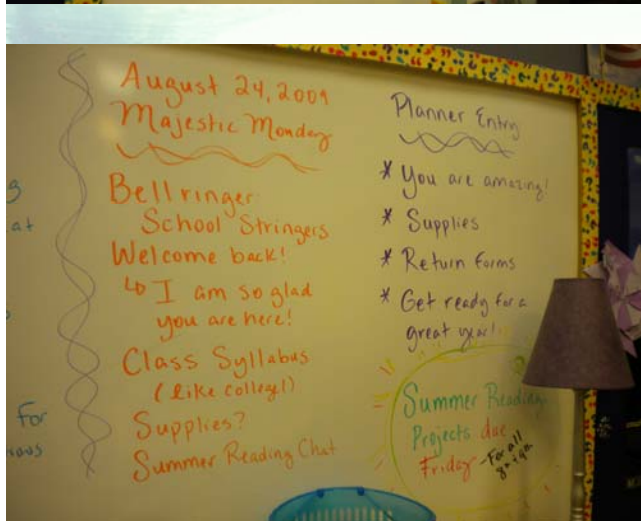 August 24, 2009
Majestic Monday
Bellringer:
School Stringers
Welcome back!
I am so glad
you are here!
Class Syllabus
(like college!)
Supplies?
Summer Reading Chat
Planner Entry
* You are amazing!
* Supplies
* Return forms
* Get ready for a
great year!
Summer Reading
Projects due
Friday - For all
at
For